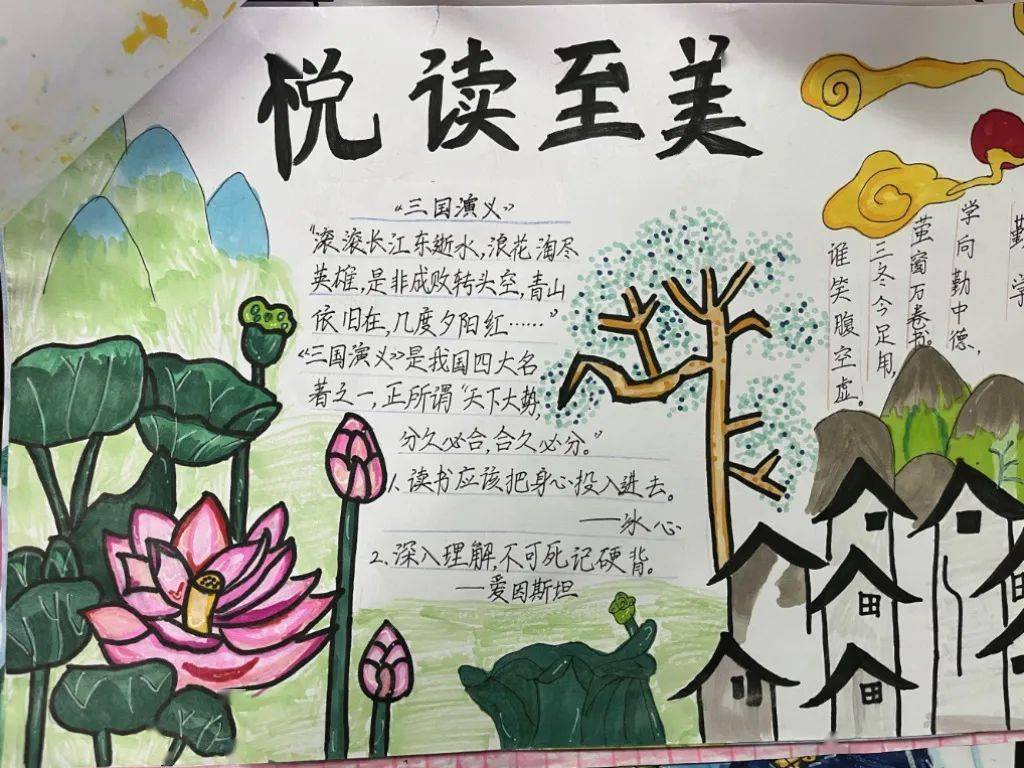 悦读至美
《三国演义》
"滚滚长江东逝水,浪花淘尽
英雄,是非成败转头空,青山
依旧在,几度夕阳红……"
《三国演义》是我国四大名
著之一,正所谓"天下大势,
分久必合,合久必分。"
1.读书应该把身心投入进去。
——冰心
2.深入理解,不可死记硬背。
——爱因斯坦
勤学
学向勤中德,
茧窗万卷书。
三冬今足用,
谁笑腹空虚。